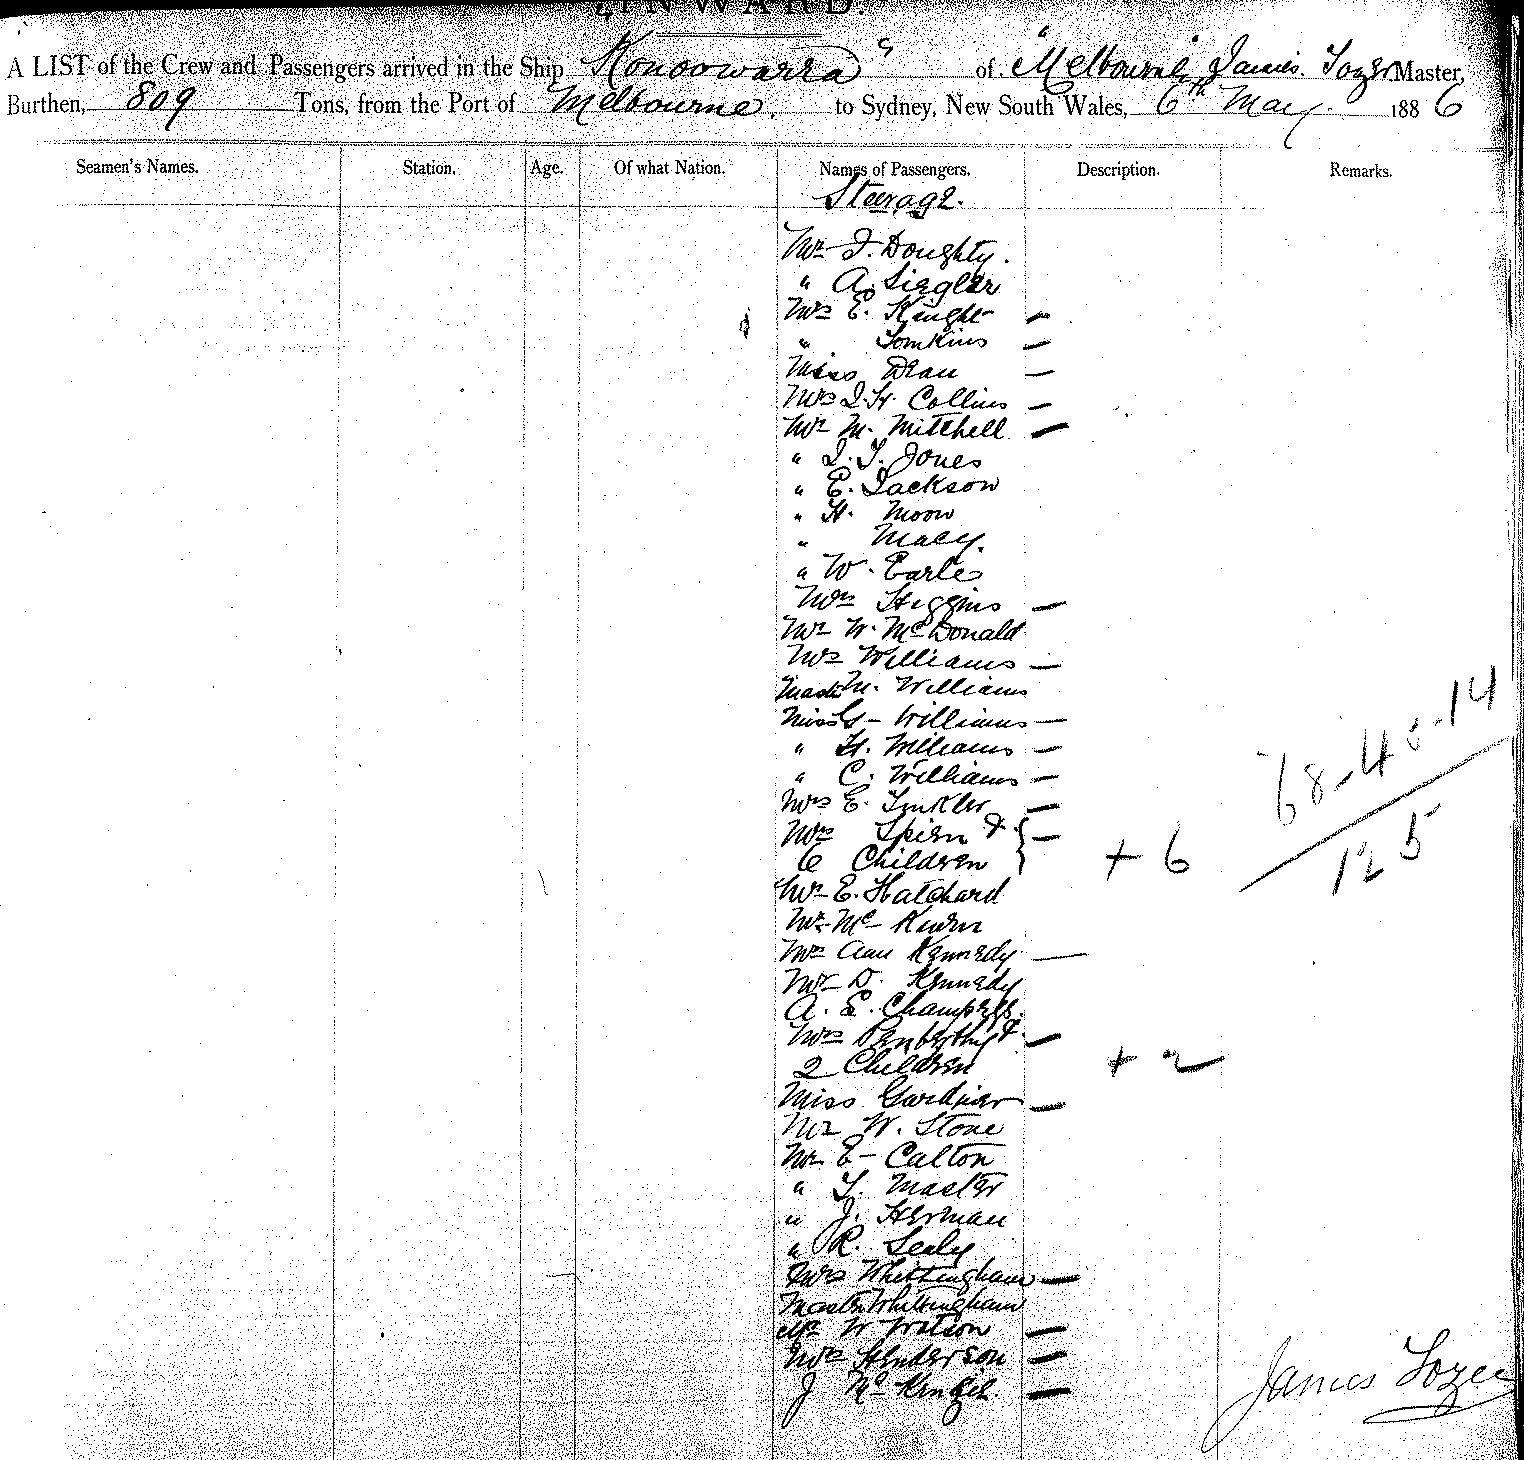 INWARD.
A LIST of the Crew and Passengers arrived in the Ship "Konoowarra" of Melbourne, James Tozer Master,
Burthen, 809 Tons, from the Port of Melbourne, to Sydney, New South Wales, 6th May 1886
Seamen's Names. Station. Age. Of what Nation. Names of Passengers. Description. Remarks.
Steerage.
Mr J. Doughty.
" A. Siegler
Mrs E. Knight —
" Tomkins —
Miss Dean —
Mrs J. H. Collins —
Mr M. Mitchell —
" J. T. Jones
" E. Jackson
" H. Moon
" Macy.
" W. Earle
Mrs Higgins —
Mr W. McDonald
Mrs Williams —
Master M. Williams
Miss G Williams —
" H. Williams —
" C. Williams —
68-43-14
Mrs E. Tinkler —
125
Mrs Spiern & —
6 Children } + 6
Mr E. Hatchard
Mr Mc
Mrs Ann Kennedy —
Mr D. Kennedy
A. E.
Mrs Penberthy & —
2 Children + 2
Miss Gardner —
Mr W. Stone
Mr E Calton
" T. Master
" J. Herman
" R. Sealy
Mrs Whittingham —
Master Whittingham
W Watson —
Mrs Henderson —
J Mc —
James Tozer